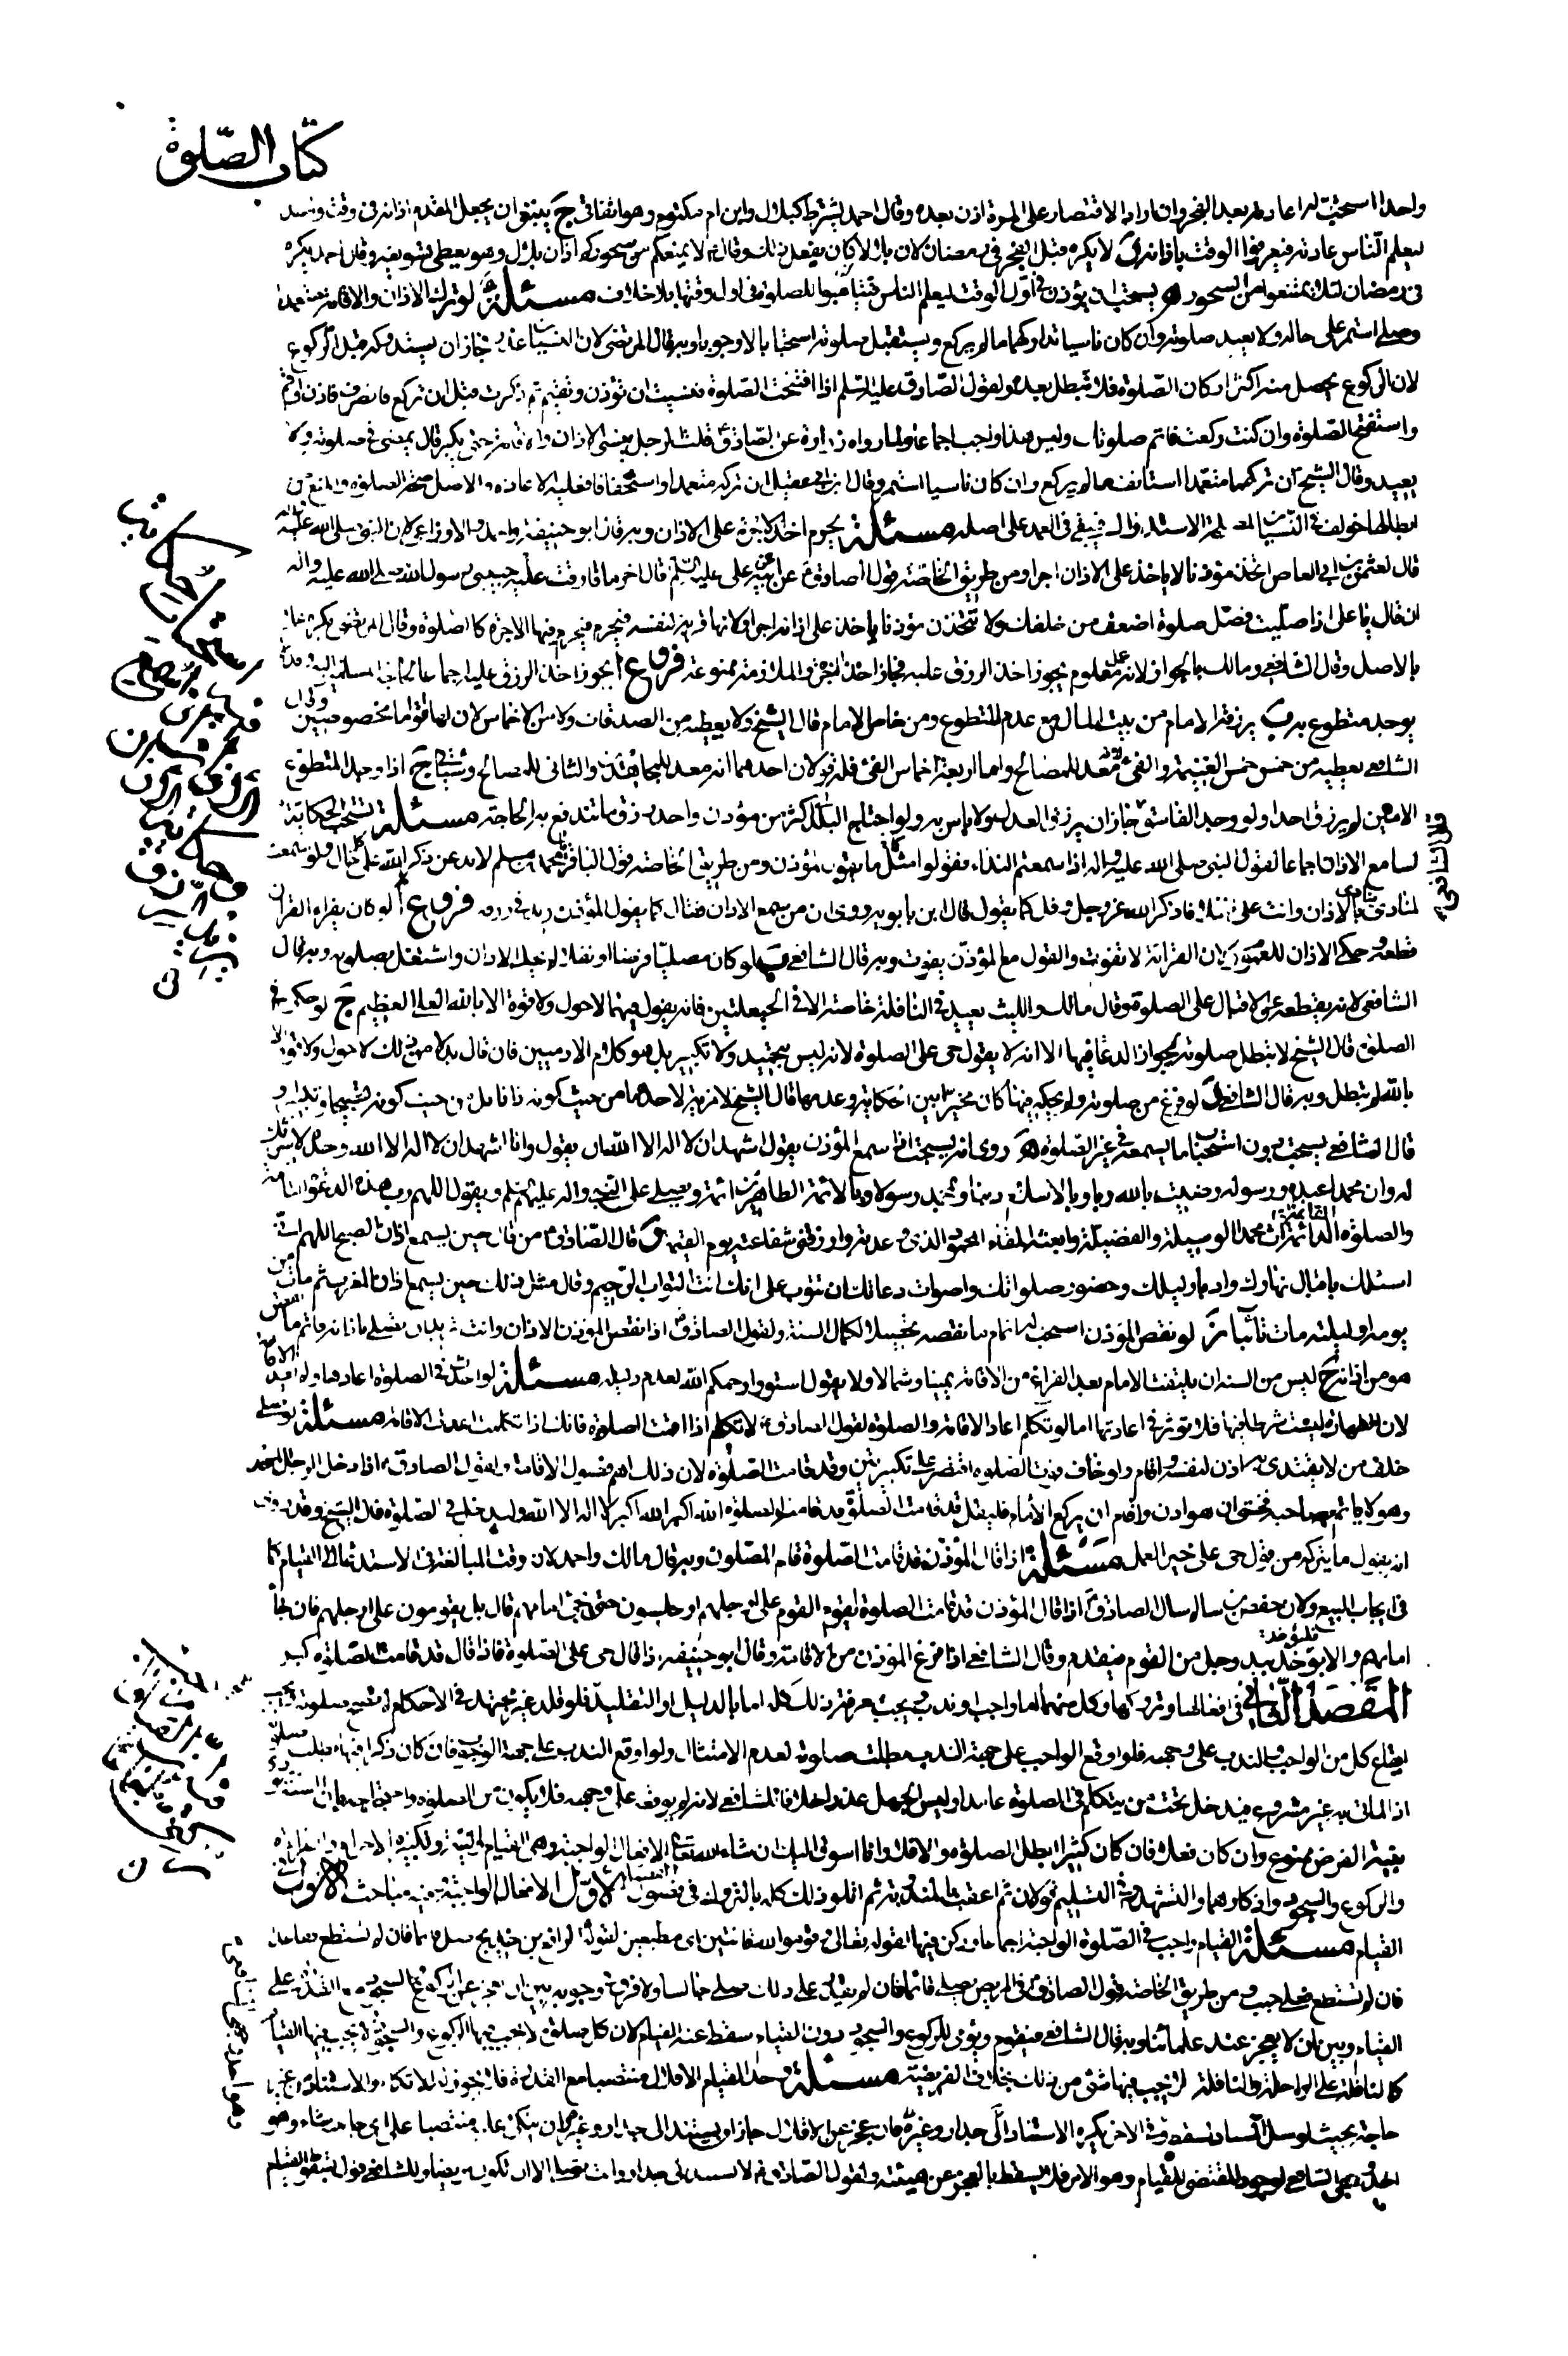 كتاب الصلوة
واحدا استحب له اعادته بعد الفجر وان اراد الاقتصار على المرة اذن بعده وقال احمد يشترط كبلال وابن ام مكتوم وهو اتفاقي ج ينبغي ان يجعل المقدم اذانه في وقت
ليعلم الناس عادته فيعرفوا الوقت باذانه د لا يكره قبل الفجر في رمضان لان بلالا كان يفعل ذلك وقال ع لا يمنعكم من سحوركم اذان بلال وهو يعطي تسويغه وقال احمد يكره
في رمضان لئلا يمتنعوا من السحور ه يستحب ان يؤذن في اول الوقت ليعلم الناس فيتأهبوا للصلوة في اول وقتها بلا خلاف مسئلة لو ترك الاذان والاقامة متعمدا
وصلى استمر على حاله ولا يعيد صلوته وان كان ناسيا تداركهما ما لم يركع ويستقبل صلوته استحبابا لا وجوبا وبه قال المرتضى لان النسيان عذر فجاز ان يستدركه قبل الركوع
لان الركوع يحصل منه اكثر اركان الصلوة فلا تبطل بعده ولقول الصادق عليه السلم اذا افتتحت الصلوة فنسيت ان تؤذن وتقيم ثم ذكرت قبل ان تركع فانصرف فاذن واقم
واستفتح الصلوة وان كنت ركعت فاتم صلوتك وليس هذا واجب اجماعا ولما رواه زرارة عن الصادق ع قلت له رجل ينسى الاذان والاقامة حتى يكبر قال يمضي في صلوته ولا
يعيد وقال الشيخ ان تركهما متعمدا استانف ما لم يركع وان كان ناسيا استمر وقال ابن ابي عقيل ان تركه متعمدا او استخفافا فعليه الاعادة والاصل صحة الصلوة والمنع من
ابطالها خولف في النسيان لمصلحة الاستدراك فيبقى في العمد على اصله مسئلة يحرم اخذ الاجرة على الاذان وبه قال ابو حنيفة واحمد والاوزاعي لان النبي صلى الله عليه واله
قال لعثمن بن ابي العاص اتخذ مؤذنا لا ياخذ على الاذان اجرا ومن طريق الخاصة قول الصادق ع عن ابيه عن علي عليه السلم قال اخر ما فارقت عليه حبيبي رسول الله صلى الله عليه واله
ان قال يا علي اذا صليت فصل صلوة اضعف من خلفك ولا تتخذن مؤذنا ياخذ على اذانه اجرا ولانها قربة لنفسه فيحرم فيها الاجرة كالصلوة وقال المرتضى يكره عملا
بالاصل وقال الشافعي ومالك بالجواز لانه عمل معلوم يجوز اخذ الرزق عليه فجاز اخذ الاجرة والملازمة ممنوعة فروع ا يجوز اخذ الرزق عليه اجماعا لحاجة المسلمين اليه وقد لا
يوجد متطوع به ب يرزقه الامام من بيت المال مع عدم المتطوع ومن خاص الامام قال الشيخ ولا يعطيه من الصدقات ولا من الاخماس لان لها قوما مخصوصين وقال
الشافعي يعطيه من خمس خمس الغنيمة والفيء لانه معد للمصالح واما اربعة اخماس الفيء فله قولان احدهما انه معد للمجاهدين والثاني للمصالح ج اذا وجد المتطوع
الامين لم يرزق احدا ولو وجد الفاسق جاز ان يرزق العدل ولا باس به ولو احتاج البلد الى اكثر من مؤذن واحد رزق ما تندفع به الحاجة مسئلة تستحب الحكاية
لسامع الاذان اجماعا لقول النبي صلى الله عليه واله اذا سمعتم النداء فقولوا مثل ما يقول المؤذن ومن طريق الخاصة قول الباقر ع لمحمد بن مسلم لا تدعن ذكر الله على كل حال ولو سمعت
المنادي ينادي بالاذان وانت على الخلاء فاذكر الله عز وجل وقل كما يقول قال ابن بابويه وروي ان من سمع الاذان فقال كما يقول المؤذن زيد في رزقه فروع ا لو كان يقرأ القران
قطعه وحكى الاذان للعموم ولان القراءة لا تفوت والقول مع المؤذن يفوت وبه قال الشافعي ب لو كان مصليا فرضا او نفلا لم يحك الاذان واشتغل بصلوته وبه قال
الشافعي لانه يقطعه عن الاقبال على الصلوة وقال مالك والليث يعيد في النافلة خاصة الا في الحيعلتين فانه يقول فيهما لا حول ولا قوة الا بالله العلي العظيم ج لو حكى في
الصلوة قال الشيخ لا تبطل صلوته لجواز الدعاء فيها الا انه لا يقول حي على الصلوة لانه ليس بتحميد ولا تكبير بل هو كلام الادميين فان قال بدلا من ذلك لا حول ولا قوة الا
بالله لم تبطل وبه قال الشافعي د لو فرغ من صلوته ولم يحكه فيها كان مخيرا بين الحكاية وعدمها قال الشيخ لا مزية لاحدهما من حيث كونه اذانا بل من حيث كونه تسبيحا وتكبيرا و
قال الشافعي يستحب دون استحباب ما يسمعه في غير الصلوة ه روي انه يستحب اذا سمع المؤذن يقول اشهد ان لا اله الا الله ان يقول وانا اشهد ان لا اله الا الله وحده لا شريك
له وان محمدا عبده ورسوله رضيت بالله ربا وبالاسلام دينا وبمحمد رسولا وبالائمة الطاهرين ائمة ويصلي على النبي واله عليهم السلم ويقول اللهم رب هذه الدعوة التامة
والصلوة القائمة ات محمدا الوسيلة والفضيلة وابعثه المقام المحمود الذي وعدته وارزقني شفاعته يوم القيمة و قال الصادق ع من قال حين يسمع اذان الصبح اللهم اني
اسئلك باقبال نهارك وادبار ليلك وحضور صلواتك واصوات دعاتك ان تتوب علي انك انت التواب الرحيم وقال مثل ذلك حين يسمع اذان المغرب ثم مات من
يومه او ليلته مات تائبا ز لو نقص المؤذن استحب له اتمام ما نقصه تحصيلا لكمال السنة ولقول الصادق ع اذا نقص المؤذن الاذان وانت تريد ان تصلي باذانه فاتم ما نقص
هو من اذانه ح ليس من السنة ان يلتفت الامام بعد الفراغ من الاقامة يمينا وشمالا ولا يقول استووا رحمكم الله لعدم دليله مسئلة لو احدث في الصلوة اعادها ولم يعد الاقامة
لان الطهارة ليست شرطا فيها فلا تؤثر في اعادتها اما لو تكلم اعاد الاقامة والصلوة لقول الصادق ع لا تتكلم اذا اقمت الصلوة فانك اذا تكلمت اعدت الاقامة مسئلة لو صلى
خلف من لا يقتدى به اذن لنفسه واقام ولو خاف فوت الصلوة اقتصر على تكبيرتين وقد قامت الصلوة لان ذلك اهم فصول الاقامة ولقول الصادق ع اذا دخل الرجل المسجد
وهو لا ياتم بصاحبه فخشي ان هو اذن واقام ان يركع الامام فليقل قد قامت الصلوة قد قامت الصلوة الله اكبر الله اكبر لا اله الا الله وليدخل في الصلوة قال الشيخ وقد روي
انه يقول ما يتركه من قول حي على خير العمل مسئلة اذا قال المؤذن قد قامت الصلوة قام المصلون وبه قال مالك واحمد لان وقت المبالغة في الاستدعاء الى القيام كما
في ايجاب البيع ولان حفص بن سالم سال الصادق ع اذا قال المؤذن قد قامت الصلوة ايقوم القوم على ارجلهم او يجلسون حتى يجيء امامهم قال بل يقومون على ارجلهم فان جاء
امامهم والا فليؤخذ بيد رجل من القوم فيقدم وقال الشافعي اذا فرغ المؤذن من الاقامة وقال ابو حنيفة اذا قال حي على الصلوة فاذا قال قد قامت الصلوة كبر
المقصد الثاني في افعالها وتروكها وكل منهما اما واجب او ندب ويجب معرفة ذلك كله اما بالدليل او التقليد فلو قلد غير مجتهد في الاحكام لم تصح صلوته ويجب
ايقاع كل من الواجب والندب على وجهه فلو اوقع الواجب على جهة الندب بطلت صلوته لعدم الامتثال ولو اوقع الندب على جهة الوجوب فان كان ذكرا فيها بطلت صلوته
اذ الماتي به غير مشروع فيدخل تحت من يتكلم في الصلوة عامدا وليس الجهل عذرا خلافا للشافعي لانه لم يوقعه على وجهه فلا يكون من الصلوة
بنية الفرض ممنوع وان كان فعلا فان كان كثيرا ابطل الصلوة والا فلا وانا اسوق اليك ان شاء الله تعالى الافعال الواجبة وهي القيام والنية وتكبيرة الاحرام والقراءة
والركوع والسجود واذكارهما والتشهد وفي التسليم قولان ثم اعقب بالمندوبة ثم اتلو ذلك كله بالتروك في فصول الاول الافعال الواجبة وفيه مباحث الاول
القيام مسئلة القيام واجب في الصلوة الواجبة اجماعا وركن فيها لقوله تعالى وقوموا لله قانتين اي مطيعين لقوله ع لرافع بن خديج صل قائما فان لم تستطع فقاعدا
فان لم تستطع فعلى جنب ومن طريق الخاصة قول الصادق ع في المريض يصلي قائما فان لم يقدر على ذلك صلى جالسا ولا فرق في وجوبه بين ان يعجز عن الركوع والسجود مع القدرة على
القيام وبين ان لا يعجز عند علمائنا وبه قال الشافعي فيقوم ويومي للركوع والسجود دون القيام سقط عنه القيام لان كل صلوة لا يجب فيها الركوع والسجود لا يجب فيها القيام
كالنافلة على الراحلة والنافلة لا يجب فيها شيء من ذلك بخلاف الفريضة مسئلة وحد القيام الاقلال منتصبا مع القدرة فلا يجوز له الاتكاء والاستناد من غير
حاجة بحيث لو سل السناد سقط وفي الاخر يكره الاستناد الى جدار وغيره فان عجز عن الاقلال جاز ان يستند الى جدار وغيره او ان يتكئ عليه منتصبا على اي جانبيه شاء وهو
احد وجهي الشافعي لوجود المقتضي للقيام وهو الامر فلا يسقط بالعجز عن هيئته ولقول الصادق ع لا تستند الى جدار وانت تصلي الا ان تكون مريضا وللشافعي قول بسقوط القيام